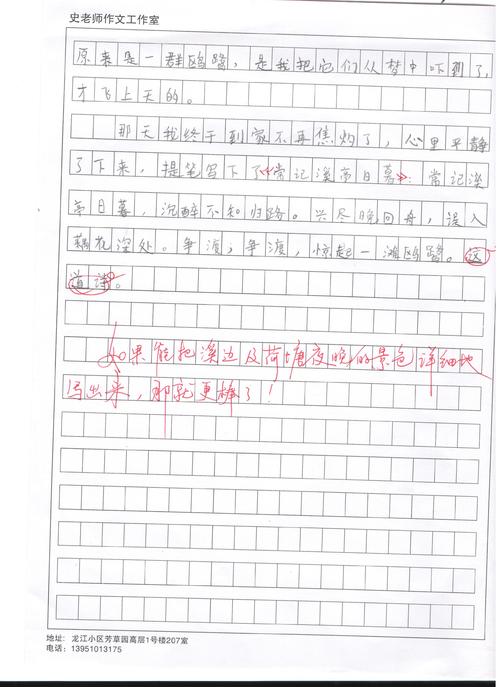 史老师作文工作室
原来是一群鸥鹭，是我把它们从梦中吓到了，
才飞上天的。
那天我终于到家不再焦灼了，心里平静
了下来，提笔写下了《常记溪亭日暮》：常记溪
亭日暮，沉醉不知归路。兴尽晚回舟，误入
藕花深处。争渡，争渡，惊起一滩鸥鹭。这
道诗。
如果能把溪边及荷塘夜晚的景色详细地
写出来，那就更棒了！
地址: 龙江小区芳草园高层1号楼207室
电话：13951013175